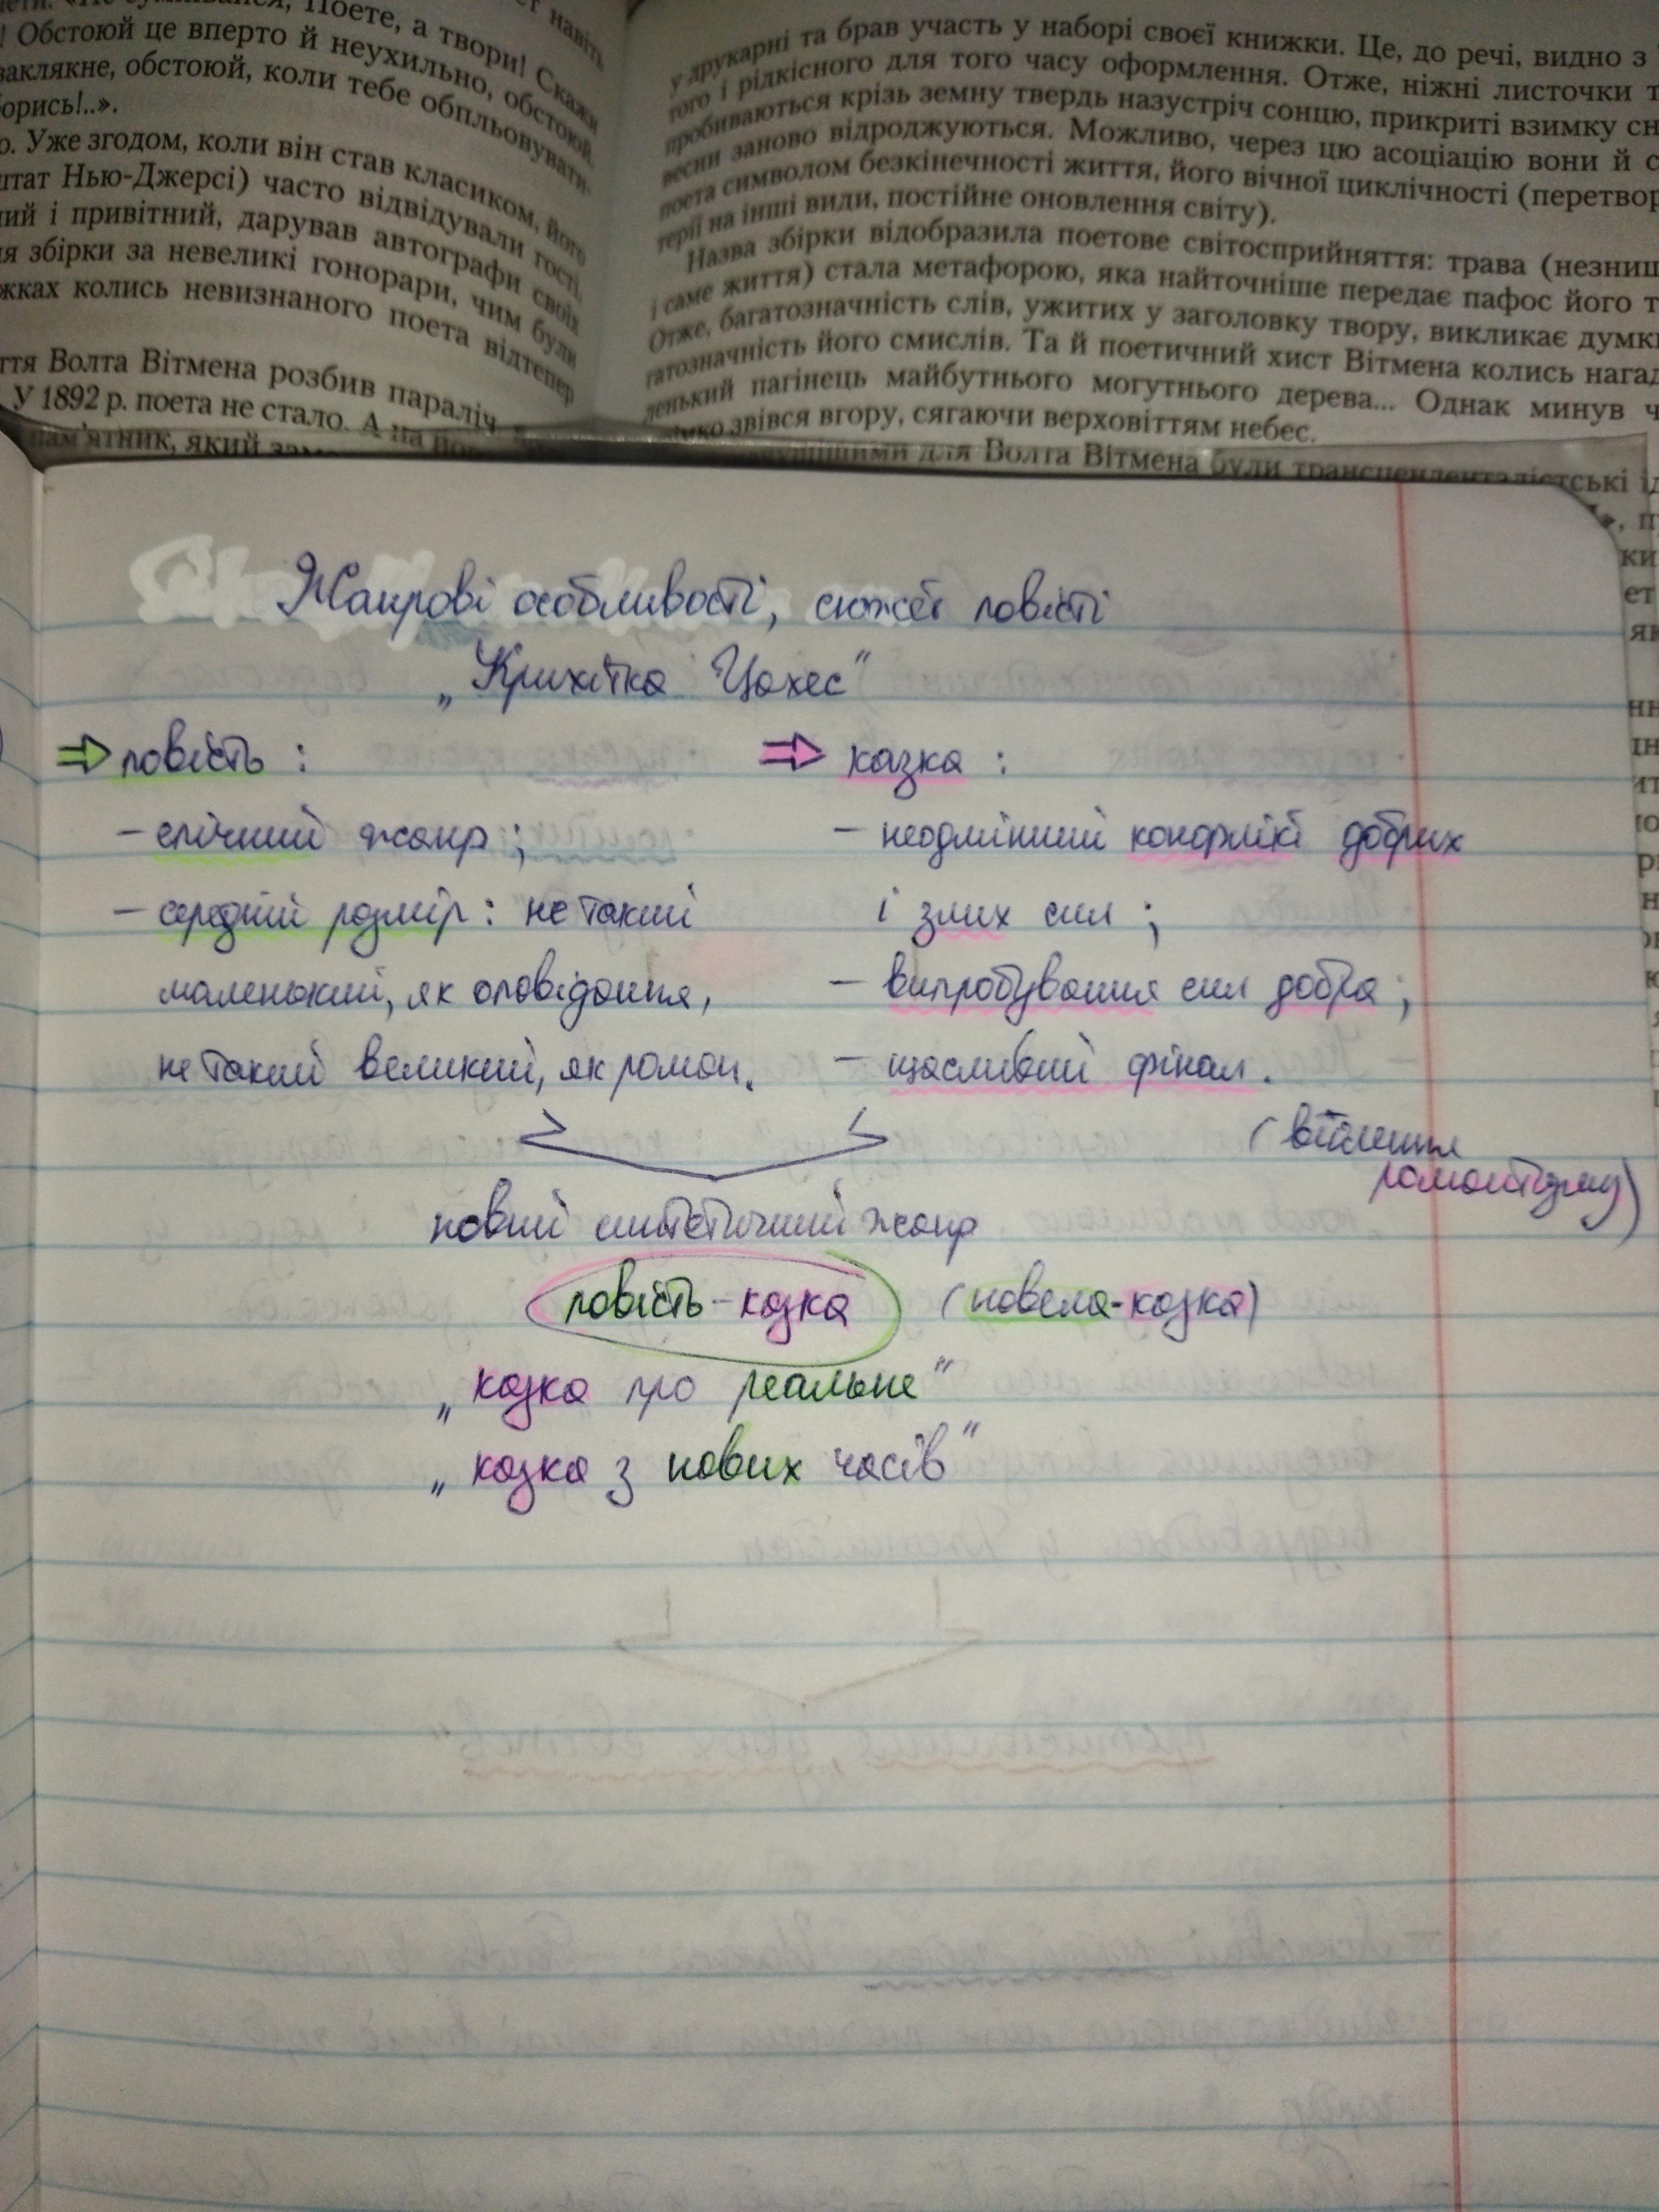 навіть
Поете, а твори! Скажи
! Обстоюй це вперто й неухильно, обстоюй,
заклякне, обстоюй, коли тебе обпльовувати-
борись!..».
о. Уже згодом, коли він став класиком, його
штат Нью-Джерсі) часто відвідували гості.
ний і привітний, дарував автографи своїх
ня збірки за невеликі гонорари, чим були
жках колись невизнаного поета відтепер
ття Волта Вітмена розбив параліч,
У 1892 р. поета не стало. А на
пам'ятник, який
у друкарні та брав участь у наборі своєї книжки. Це, до речі, видно з
того і рідкісного для того часу оформлення. Отже, ніжні листочки т
пробиваються крізь земну твердь назустріч сонцю, прикриті взимку сн
весни заново відроджуються. Можливо, через цю асоціацію вони й с
поета символом безкінечності життя, його вічної циклічності (перетвор
терії на інші види, постійне оновлення світу).
Назва збірки відобразила поетове світосприйняття: трава (незнищ
і саме життя) стала метафорою, яка найточніше передає пафос його т
Отже, багатозначність слів, ужитих у заголовку твору, викликає думк
гатозначність його смислів. Та й поетичний хист Вітмена колись нагад
ленький пагінець майбутнього могутнього дерева... Однак минув ч
звівся вгору, сягаючи верховіттям небес.
для Волта Вітмена були трансценденталістські ід
Жанрові особливості, сюжет повісті
„Крихітка Цахес"
⇒ повість :
– епічний жанр ;
– середній розмір : не такий
маленький, як оповідання,
не такий великий, як роман.
⇒ казка :
– неодмінний конфлікт добрих
і злих сил ;
– випробування сил добра ;
– щасливий фінал.
(втілення
романтизму)
новий синтетичний жанр
повість-казка (новела-казка)
„казка про реальне"
„казка з нових часів"